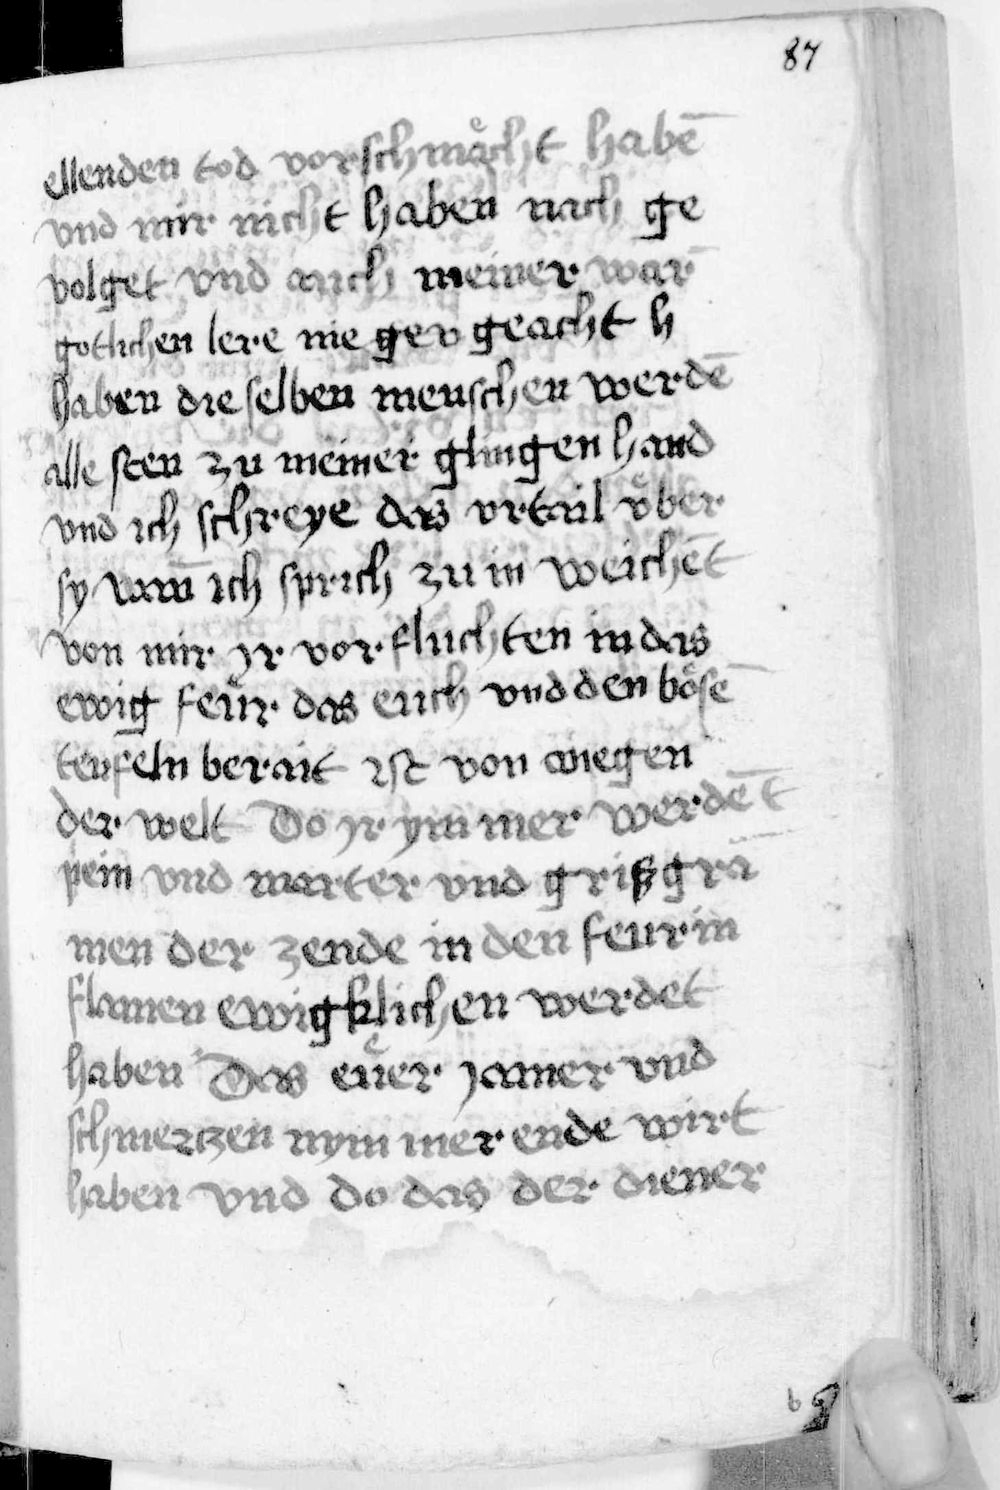 87
ellenden tod vorschmaͤcht habē
vnd mir nicht haben nach ge
volget vnd auch meiner war̄
gotlichen lere nie gev geacht h
haben die selben menschen werdē
alle sten zu meiner glingen hand
vnd ich schreye das vrtail vͤber
sy wan̄ ich sprich zu in weichēt
von mir yr vor fluchten in das
ewig feuͤr das euch vnd den boͤsē
teufeln berait ist von anegen
der welt Do yr ymmer werdēt
pein vnd marter vnd grißgra
men der zende in den feurin
flamen ewigklichen werdet
haben Das euͤer jamer vnd
schmerczen nymmer ende wirt
haben vnd do das der diener